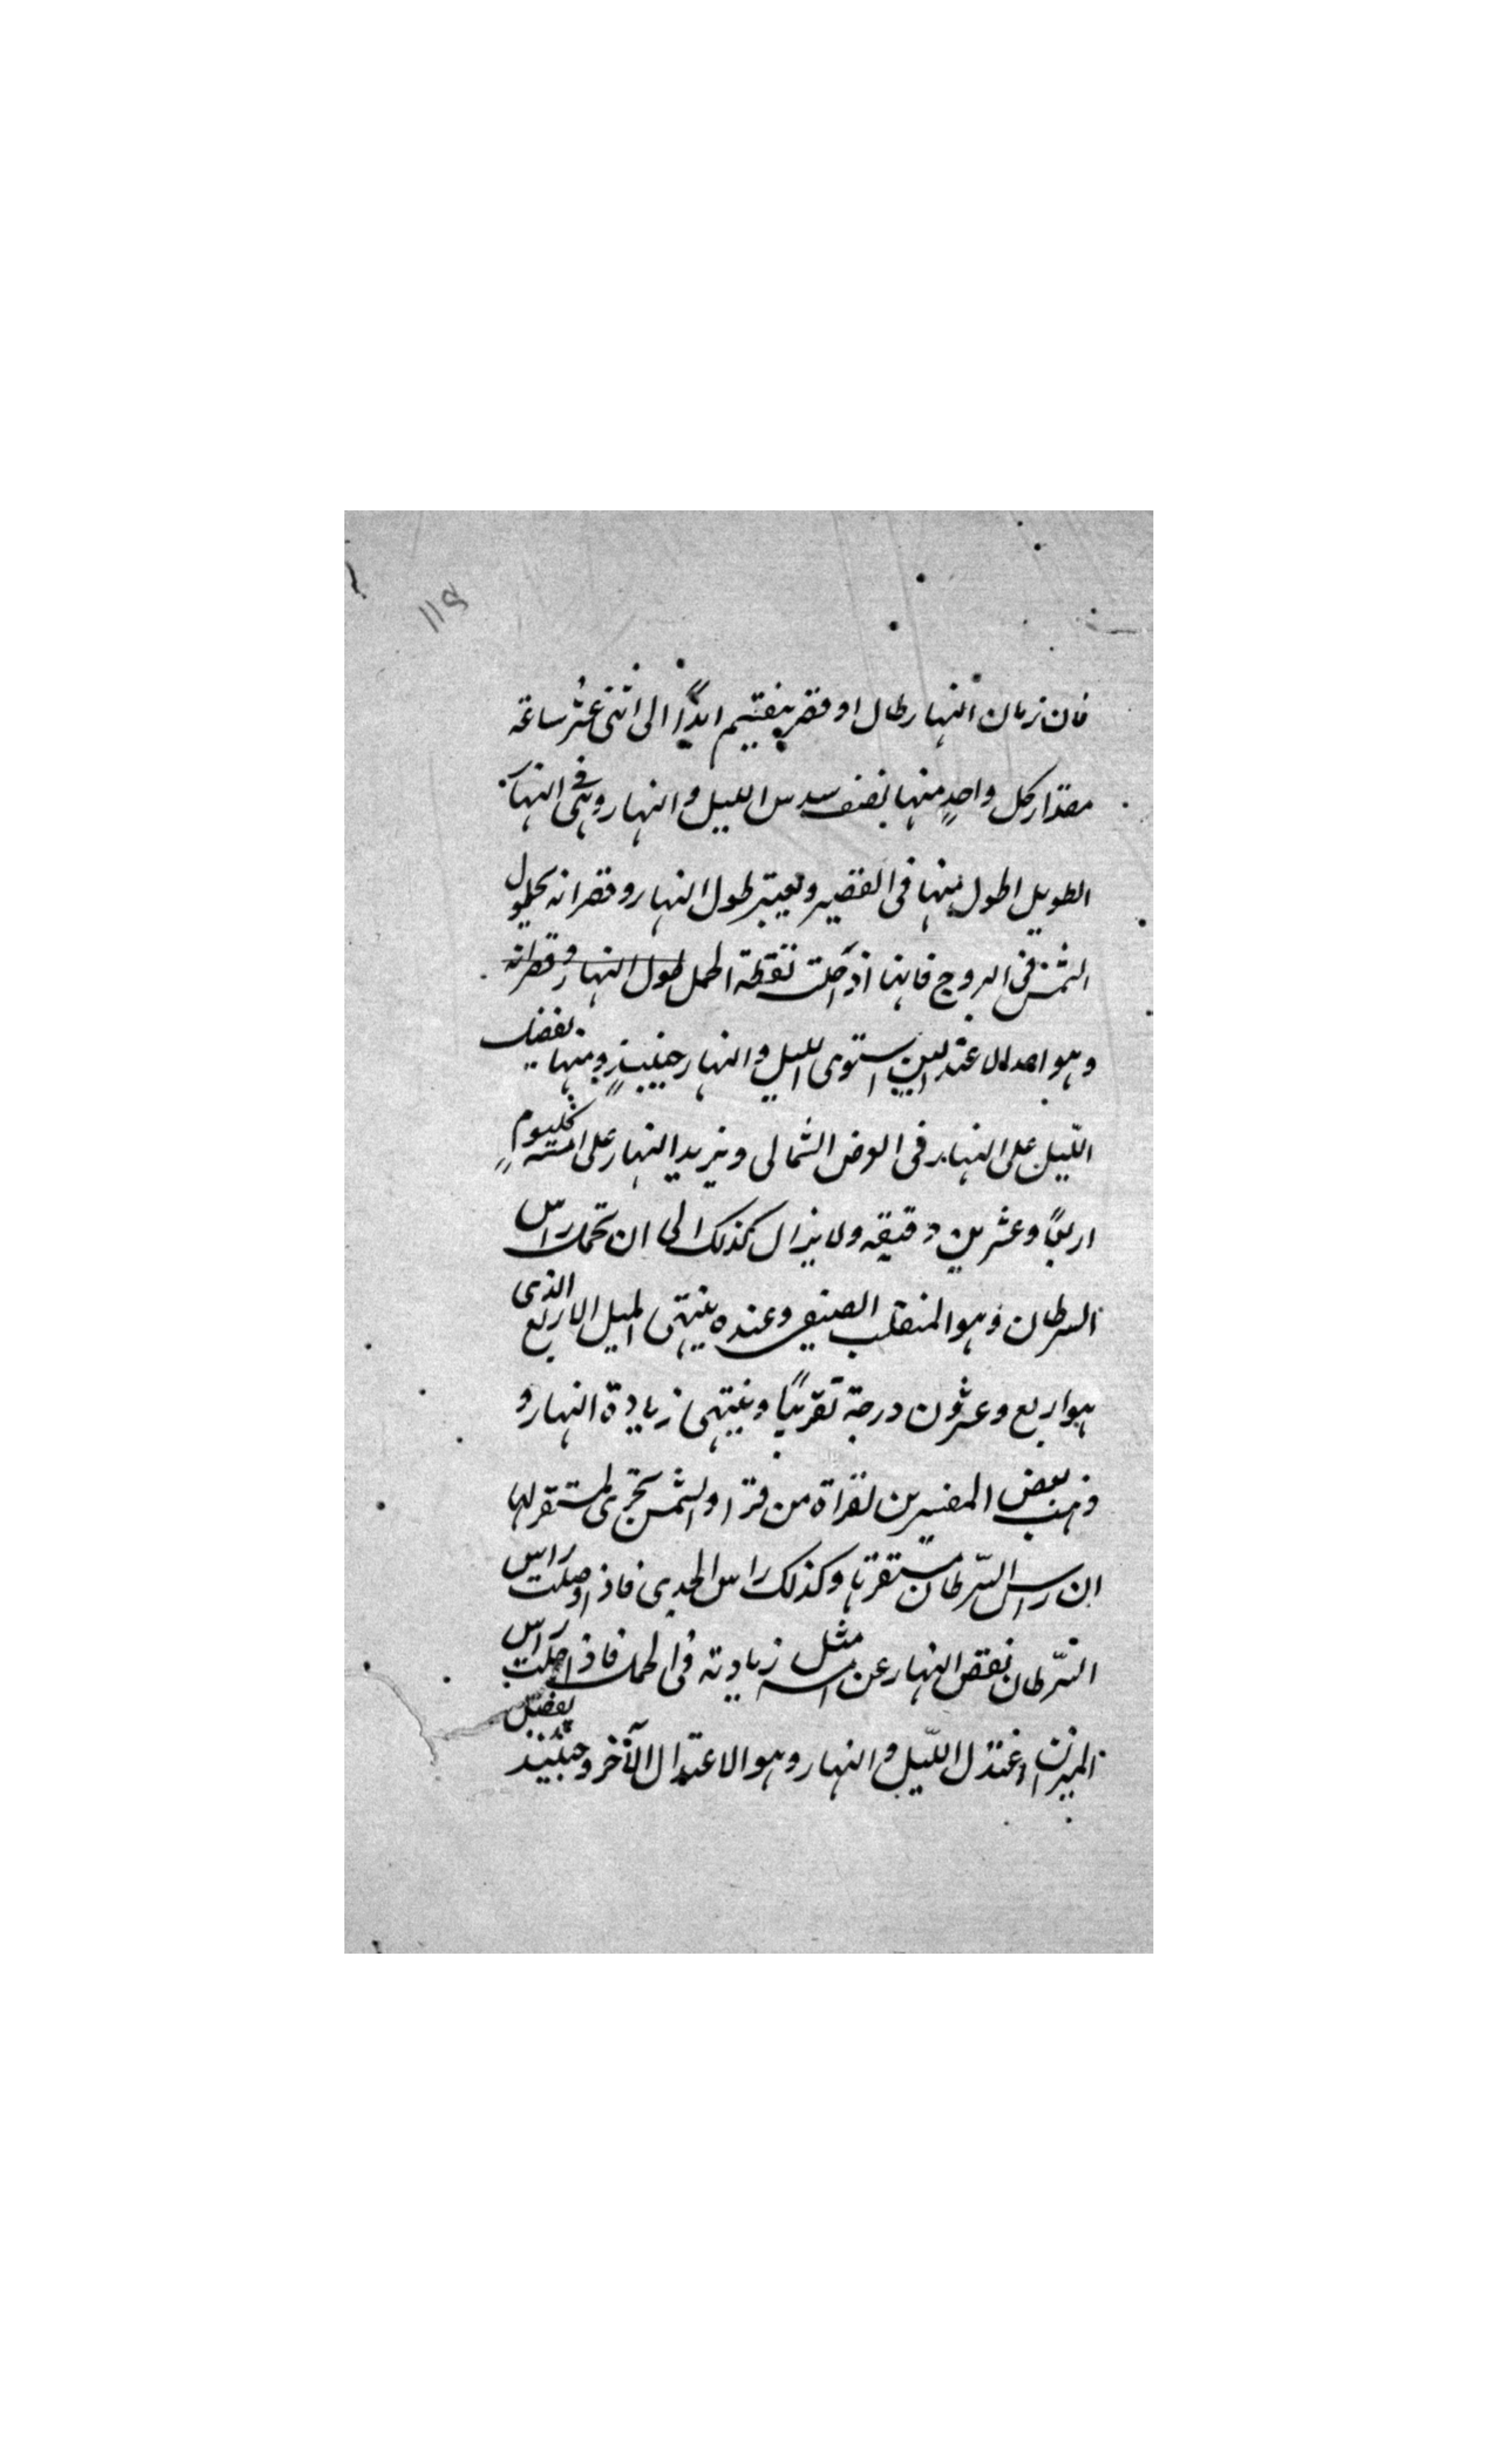 ١١٥
فان زمان النهار طال او قصر ينقسم ابدًا الى اثنى عشر ساعة
مقدار كل واحدٍ منها نصف سدس الليل والنهار وهى فى النهار
الطويل اطول منها فى القصير ويعتبر طول النهار وقصرانه بحلول
الشمس فى البروج فانها اذا حلت نقطة الحمل طول النهار وقصرانه
وهو احد الاعتدالين استوى الليل والنهار حينئذٍ ومنها يفضل
الليل على النهار فى العرض الشمالى ويزيد النهار على امسه كل يوم
اربعًا وعشرين دقيقه ولا يزال كذلك الى ان تحل راس
السرطان وهو المنقلب الصيفى وعنده ينتهى الميل الاربع الذى
هو اربع وعشرون درجة تقريبًا وينتهى زيادة النهار و
ذهب بعض المفسرين لقراة من قرا والشمس تجرى لمستقر لها
ان راس السّرطان مستقرها وكذلك راس الجدى فاذا وصلت راس
السّرطان نقص النهار عن امسه مثل زيادته فى الحمل فاذا حلت راس
الميزان اعتدل اللّيل والنهار وهو الاعتدال الآخر وحينئذ يفضل